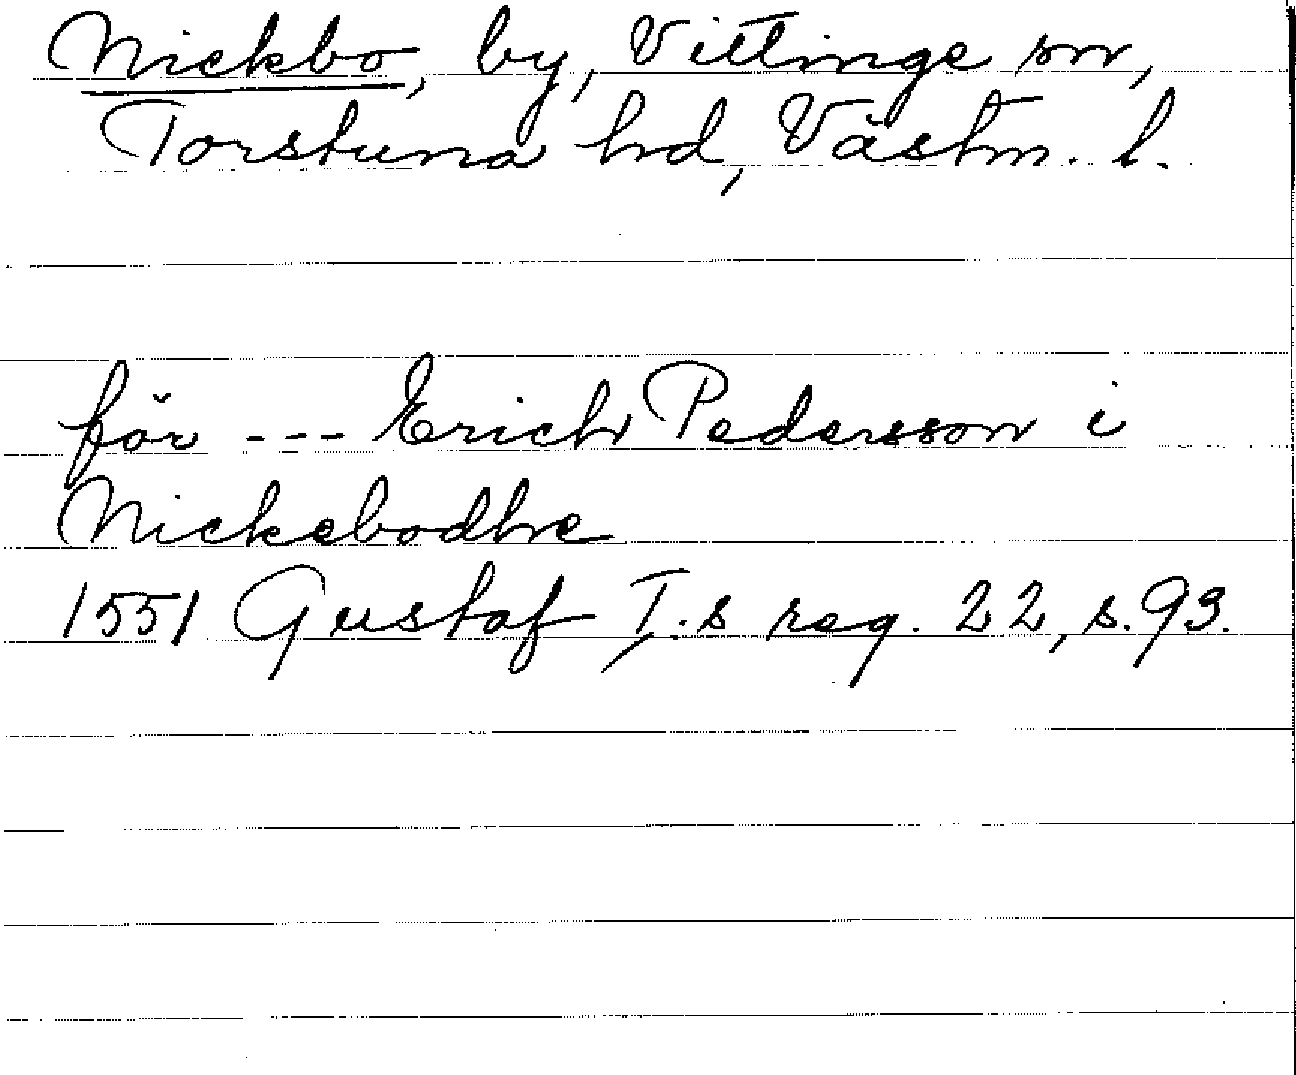 Nickbo, by, Vittinge sn,
Torstuna hd, Västm. l.
för --- Erich Pedersson i
Nickebodhe
1551 Gustaf I.s reg. 22, s. 93.